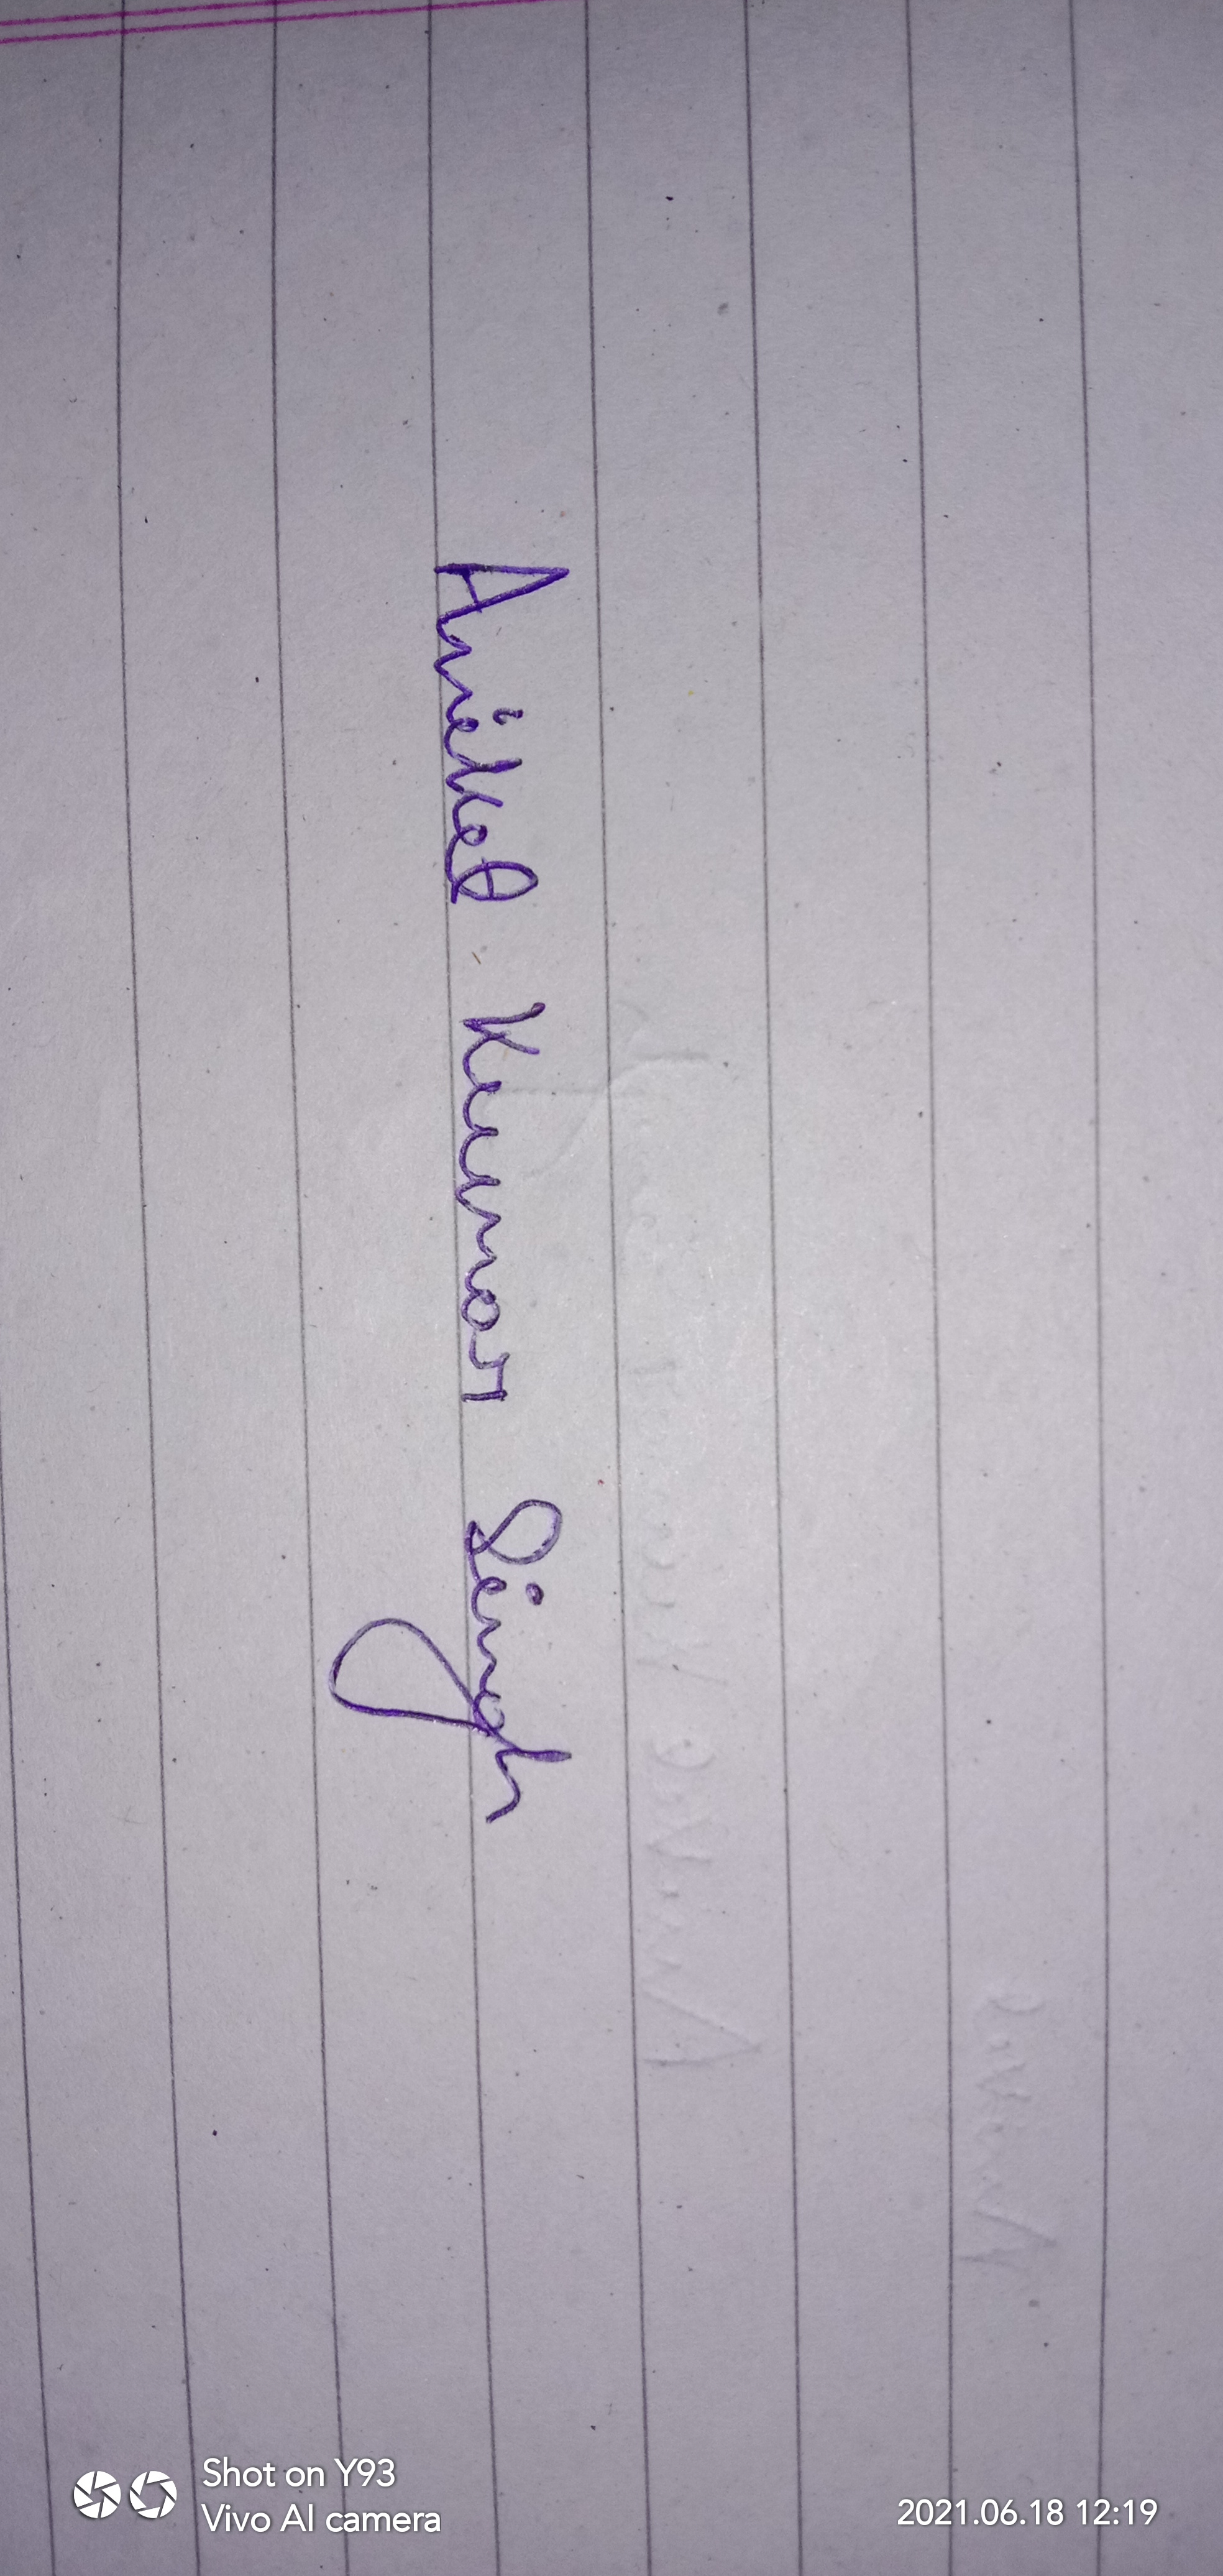 Aniket Kumar Singh
Shot on Y93
Vivo AI camera
2021.06.18 12:19